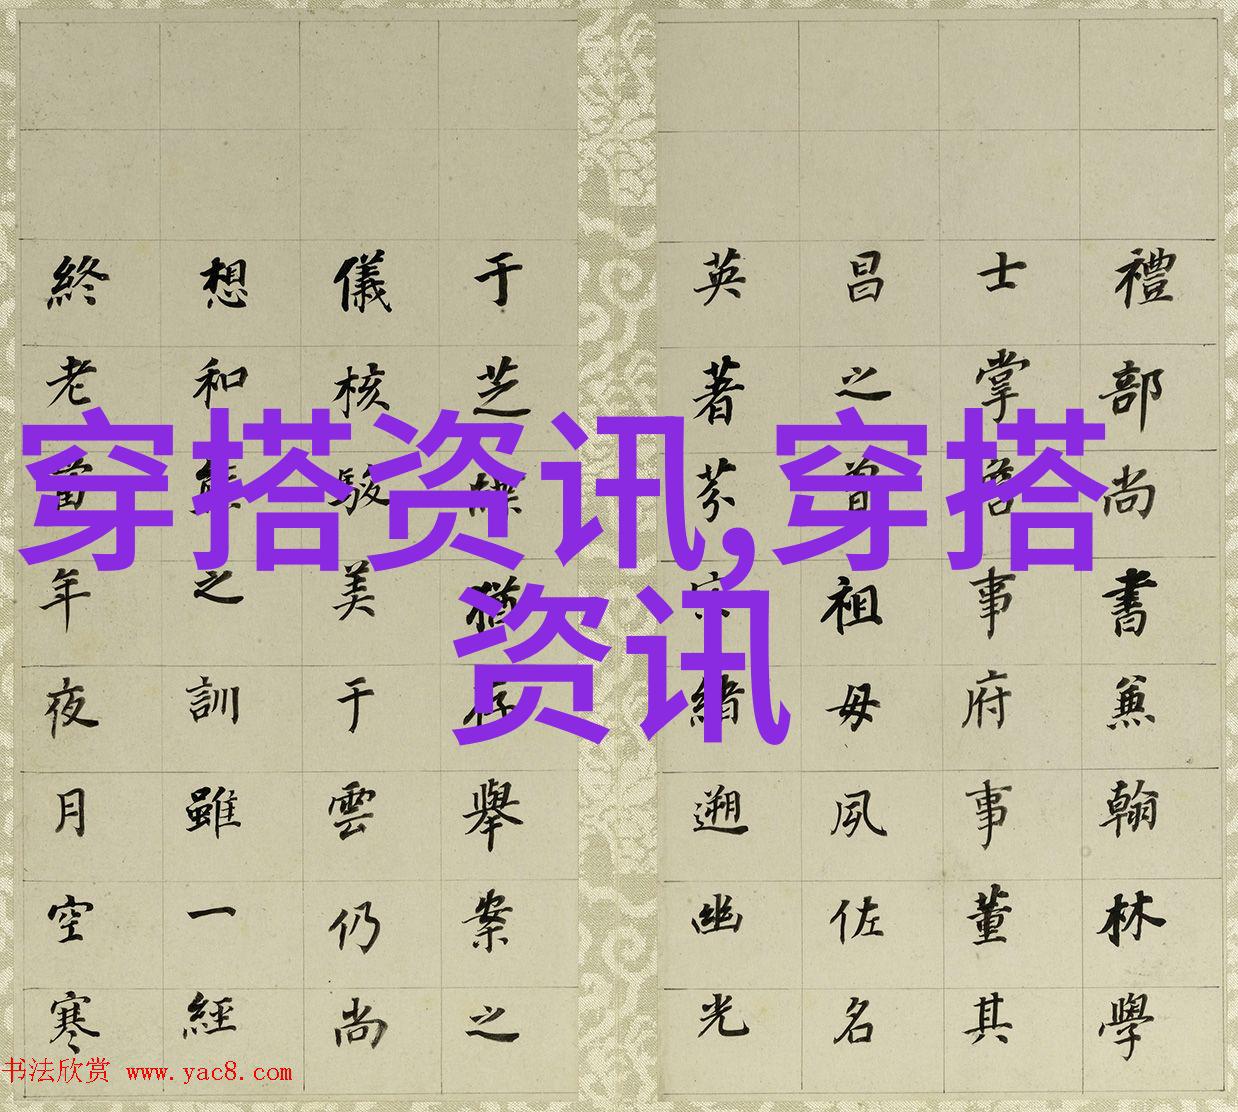 禮部尚書兼翰林學
士掌詹事府事董其
昌之曾祖母夙佐名
英著芬緒遡幽光
于芝猶存舉案之
儀核駿美于雲仍尚
想和熊之訓雖一經
終老當年夜月空寒
穿搭资讯,穿搭
资讯
书法欣赏 www.yac8.com